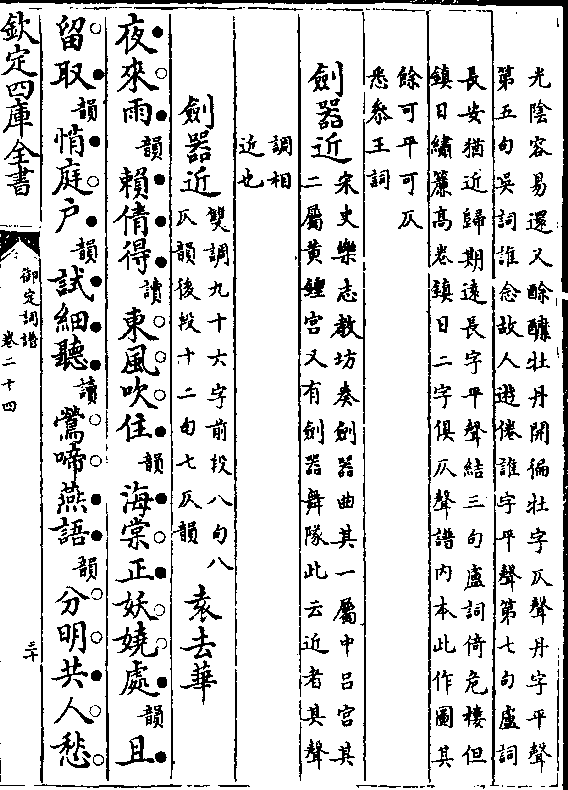 光陰容易還又酴醿牡丹開徧牡字仄聲丹字平聲
第五句吳詞誰念故人遊倦誰字平聲第七句盧詞
長安猶近歸期遠長字平聲結三句盧詞倚危樓但
鎮日繡簾高卷鎮日二字俱仄聲譜内本此作圖其
餘可平可仄
悉叅王詞
劍器近宋史樂志教坊奏劍器曲其一屬中吕宫其
二屬黄鐘宫又有劍器舞隊此云近者其聲
調相
近也
劍器近雙調九十六字前段八句八
仄韻後段十二句七仄韻 袁去華
夜來雨韻賴倩得讀東風吹住韻海棠正妖嬈處韻且
留取韻悄庭户韻試細聽讀鶯啼燕語韻分明共人愁
欽定四庫全書
御定詞譜
卷二十四
三十